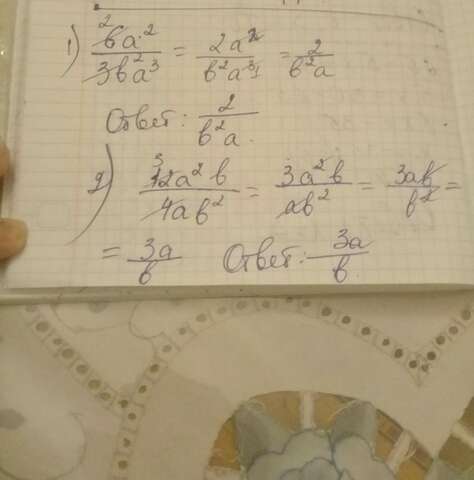 1) 6a²/3b²a³ = 2a²/b²a³ = 2/b²a
Ответ: 2/b²a.
2) 12a²b/4ab² = 3a²b/ab² = 3ab/b² =
= 3a/b Ответ: 3a/b.